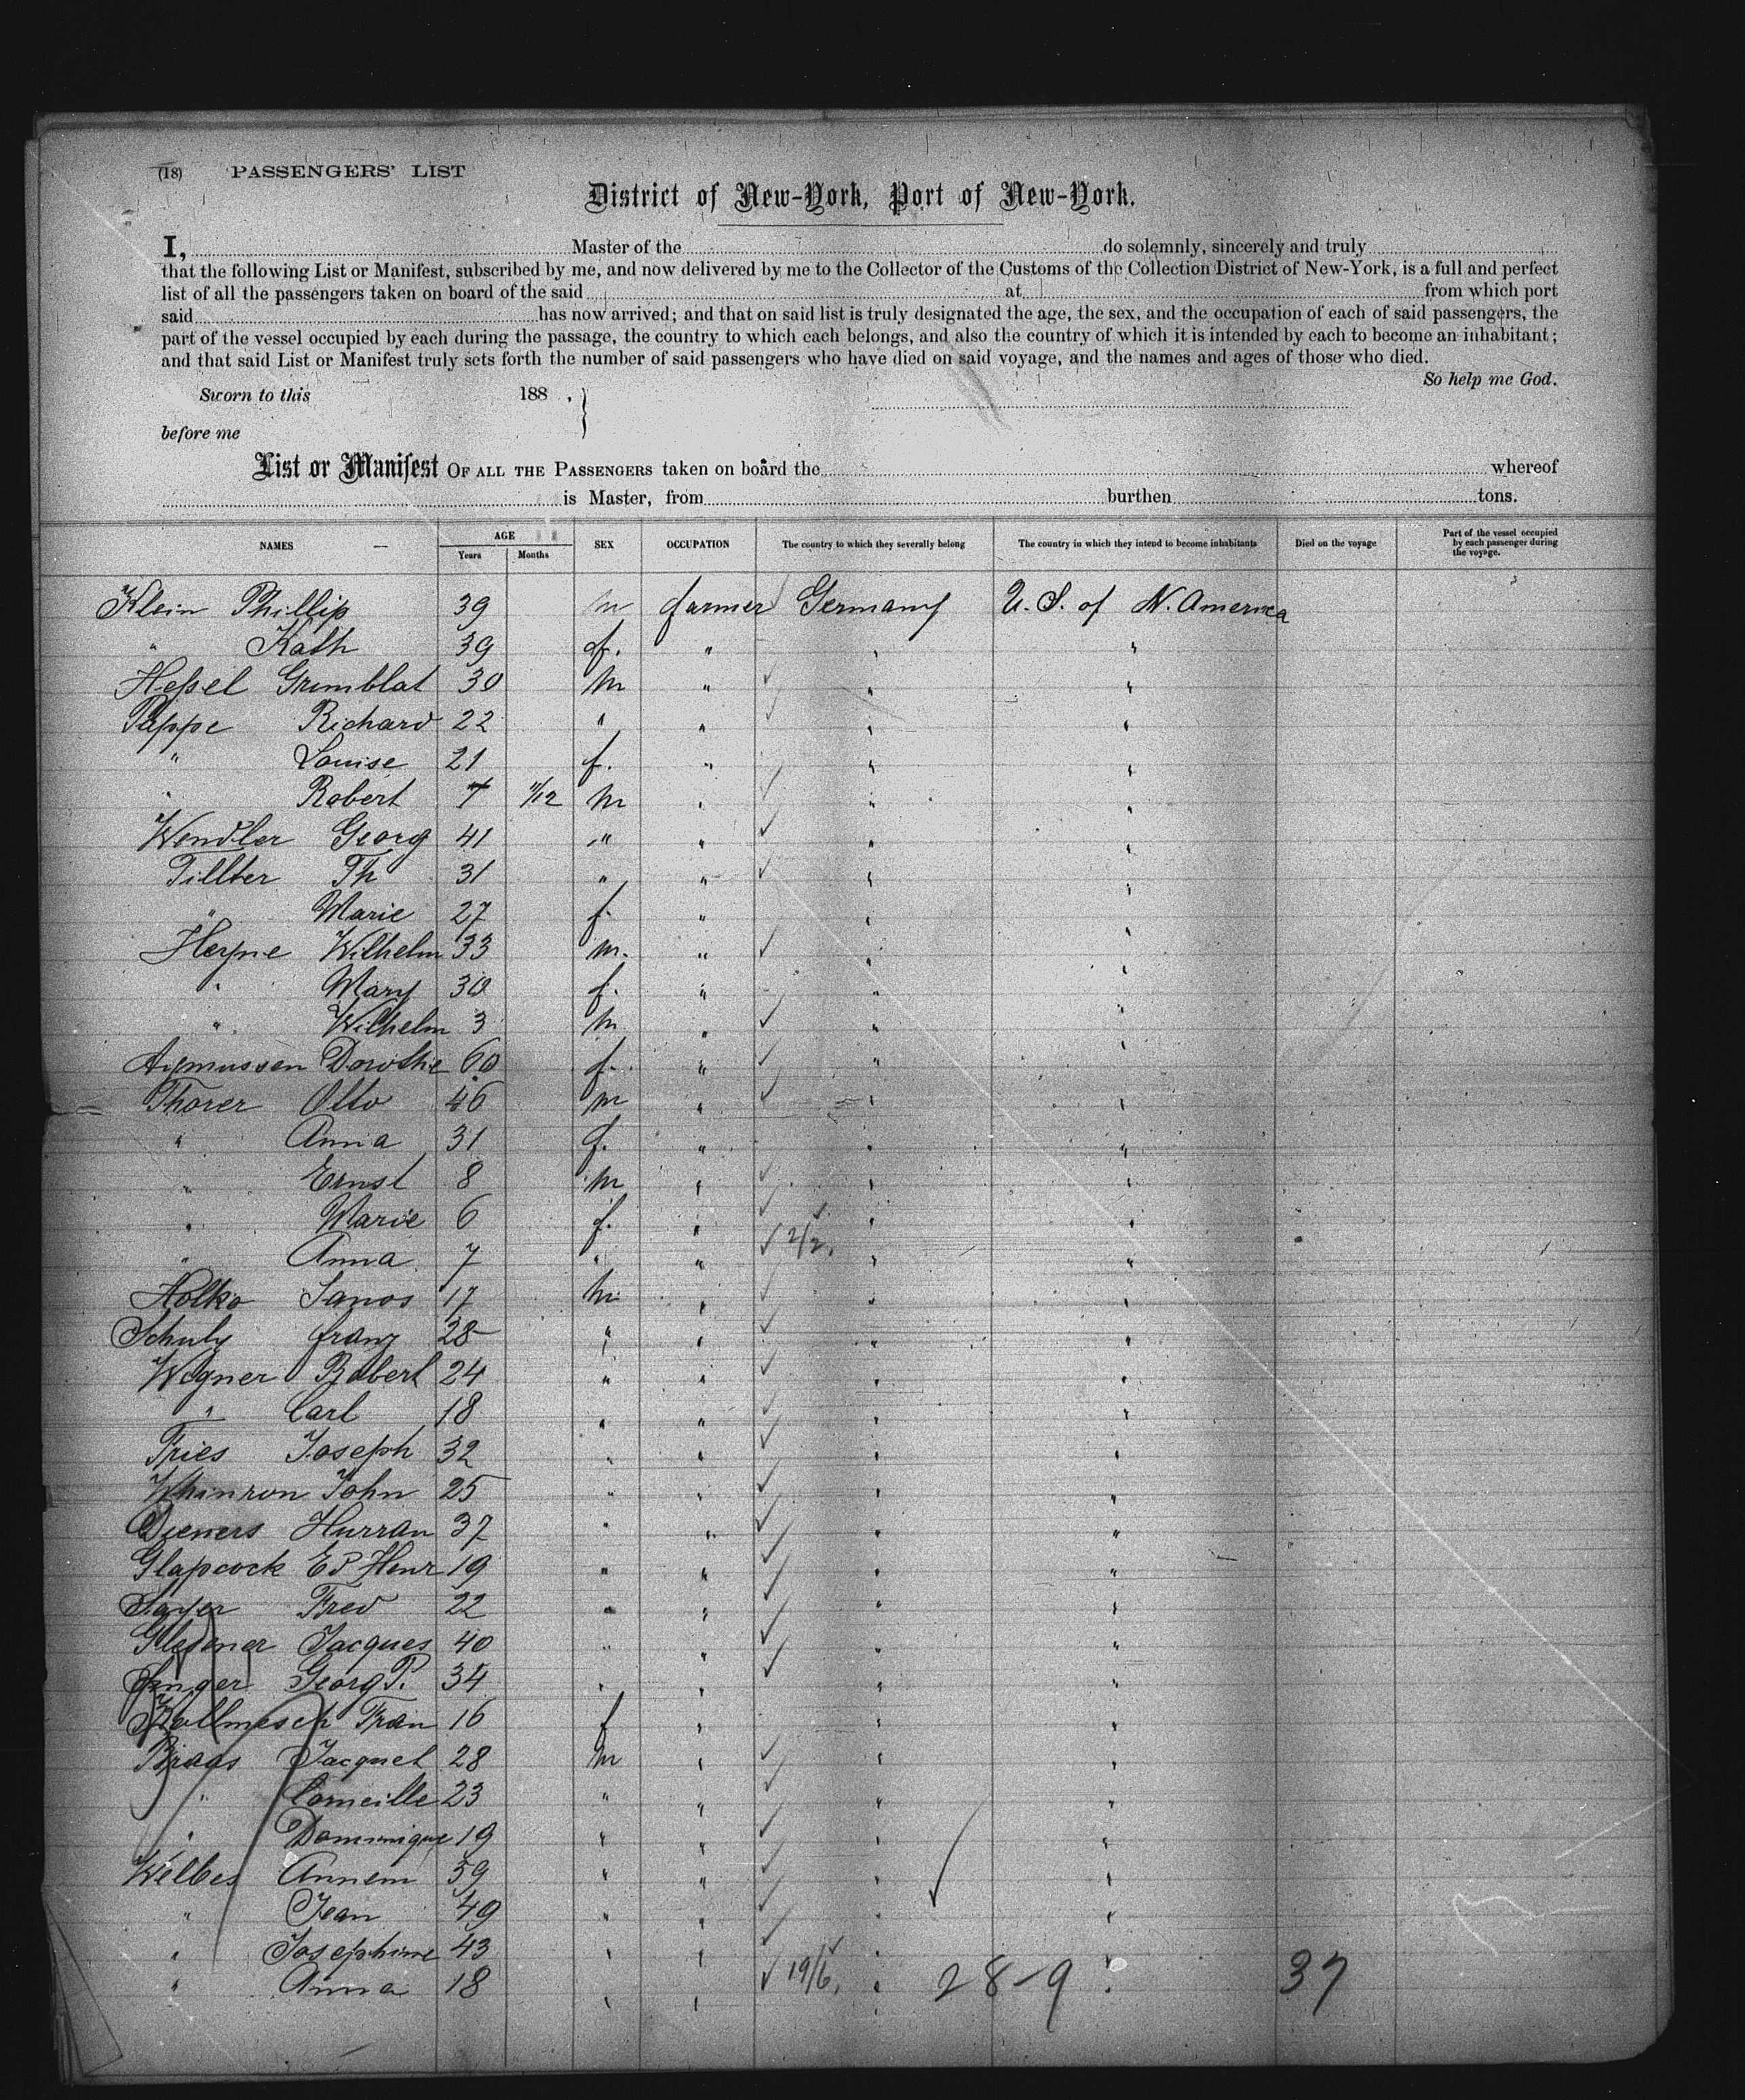 (18) PASSENGERS' LIST
District of New-York, Port of New-York.
I, Master of the do solemnly, sincerely and truly
that the following List or Manifest, subscribed by me, and now delivered by me to the Collector of the Customs of the Collection District of New-York, is a full and perfect
list of all the passengers taken on board of the said at from which port
said has now arrived; and that on said list is truly designated the age, the sex, and the occupation of each of said passengers, the
part of the vessel occupied by each during the passage, the country to which each belongs, and also the country of which it is intended by each to become an inhabitant;
and that said List or Manifest truly sets forth the number of said passengers who have died on said voyage, and the names and ages of those who died.
So help me God.
Sworn to this 188 , }
before me
List or Manifest OF ALL THE PASSENGERS taken on board the whereof
is Master, from burthen tons.
NAMES AGE Years Months SEX OCCUPATION The country to which they severally belong The country in which they intend to become inhabitants Died on the voyage Part of the vessel occupied by each passenger during the voyage.
Klein Phillip 39 m farmer Germany U. S. of N. America
" Kath 39 f. " " "
Heſsel Grimblat 30 m " " "
Pappe Richard 22 " " " "
" Louise 21 f. " " "
" Robert 11/12 m " " "
Wendler Georg 41 " " " "
Th 31 " " " "
" Marie 27 f. " " "
Heyne Wilhelm 33 m. " " "
" Mary 30 f. " " "
" Wilhelm 3 m " " "
Dorothe 60 f. " " "
Thorer Otto 46 m " " "
" Anna 31 f. " " "
" Ernst 8 m " " "
" Marie 6 f. " " "
" Anna 7 " " 2/2. " "
Holko Janos 17 m " " "
Schulz franz 28 " " " "
Wegner Robert 24 " " " "
" Carl 18 " " " "
Fries Joseph 32 " " " "
John 25 " " " "
Dieners 37 " " " "
Glaſscock Henr 19 " " " "
Sayer Fred 22 " " " "
Jacques 40 " " " "
Singer Georg P. 34 " " " "
Fran 16 f " " "
Braas Jacquet 28 m " " "
" Corneille 23 " " " "
" Dominique 19 " " " "
Welbes Annem 59 " " " "
" Jean 49 " " " "
" Josephine 43 " " " "
" Anna 18 " " 19/6. " 28-9 " 37